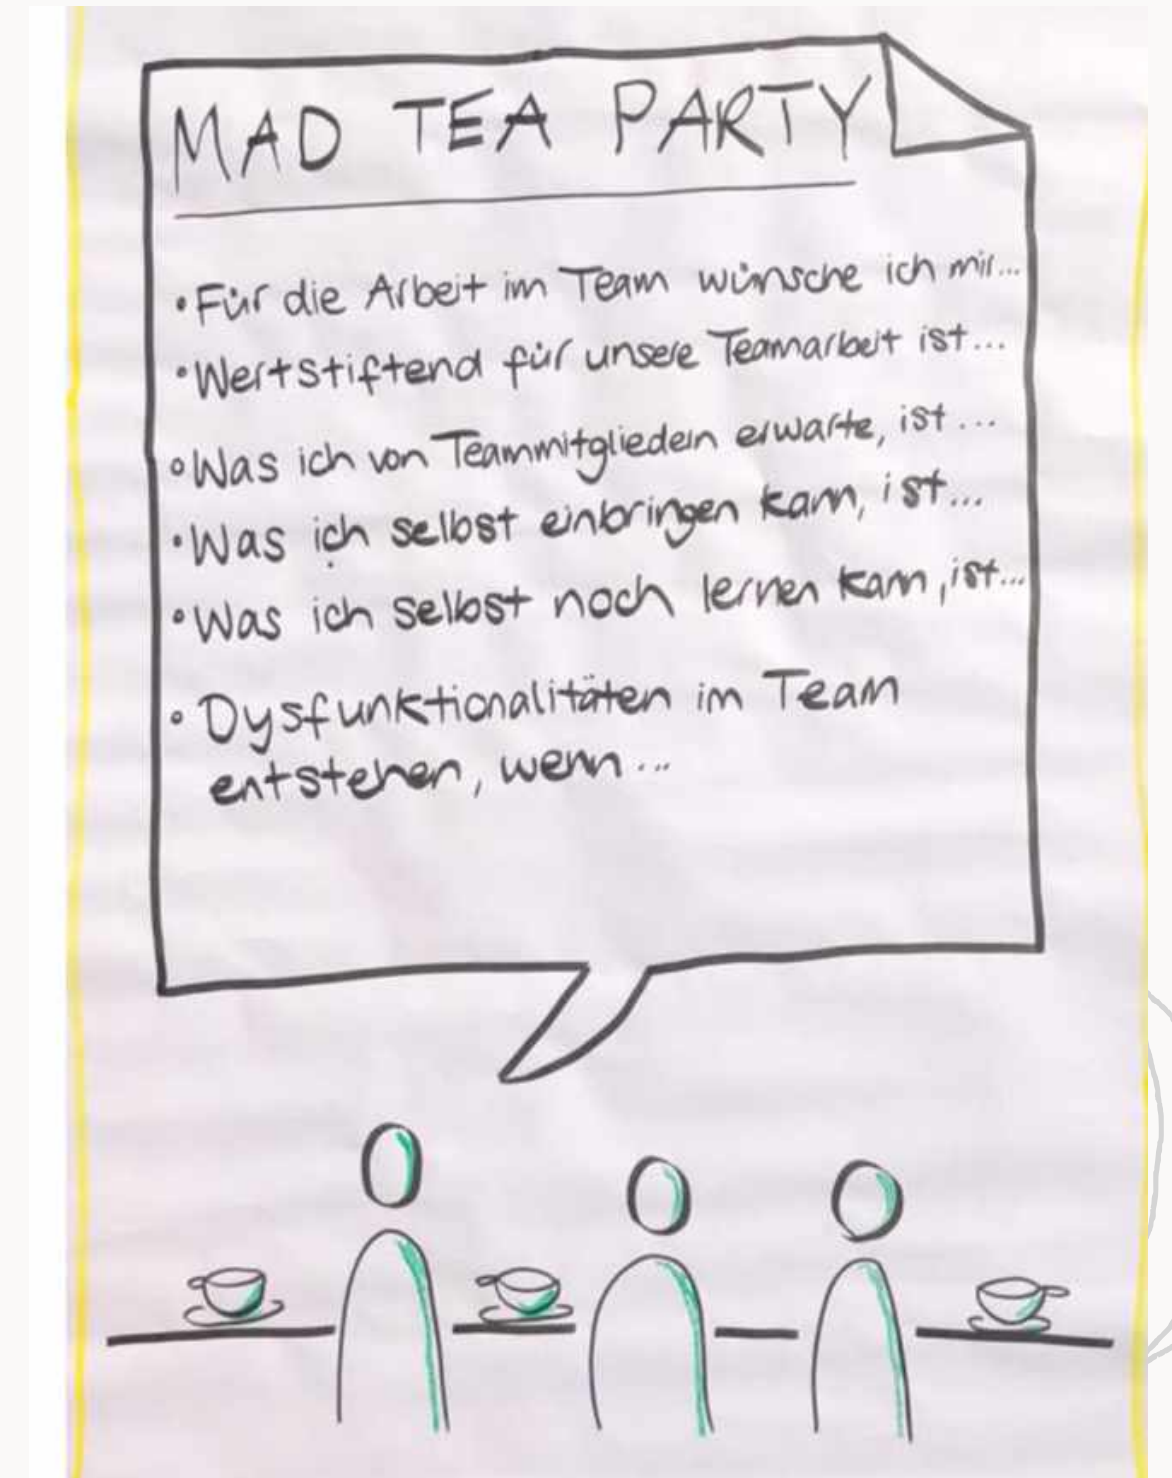 MAD TEA PARTY
• Für die Arbeit im Team wünsche ich mir...
• Wertstiftend für unsere Teamarbeit ist...
• Was ich von Teammitgliedern erwarte, ist...
• Was ich selbst einbringen kann, ist...
• Was ich selbst noch lernen kann, ist...
• Dysfunktionalitäten im Team
entstehen, wenn...